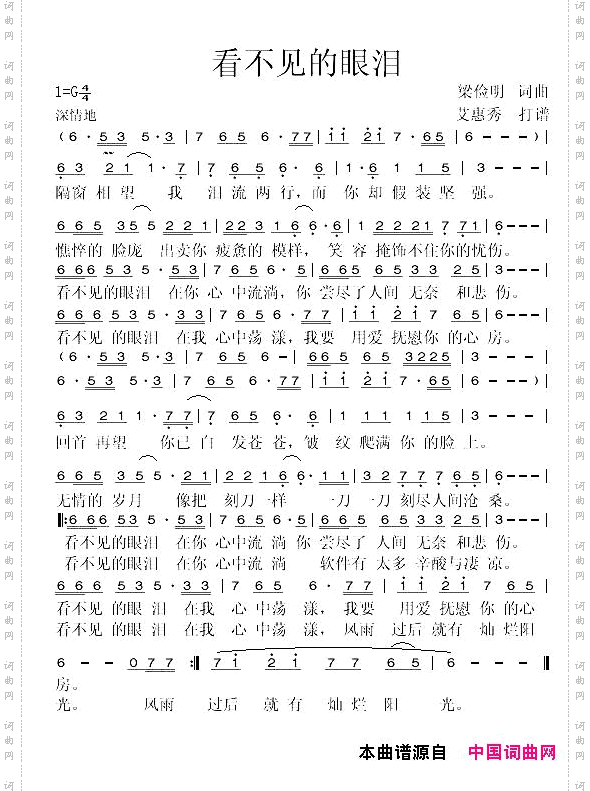 看不见的眼泪
1=G 4/4
梁俭明 词曲
深情地
艾惠秀 打谱
(6·53 5·3|7 65 6·77|ii 2i7·65|6---)|
63 21 1·7|7 65 6·6|1·6 2 21 5|3---|
隔窗相望 我 泪流两行,而 你却假装坚强。
665 35 5 221|223 166·6|1 2221 7 71|6---|
憔悴的脸庞 出卖你 疲惫的 模样, 笑 容 掩饰不住你的忧伤。
666535·53·3|7656·5|6665 6533 25|3---|
看不见的眼泪 在你 心 中流淌,你 尝尽了人间 无奈 和悲 伤。
666 53 5·53·3|7 65 6·77|1·i 2i7 67|5---|
看不见 的眼 泪 在我 心中荡 漾,我要 用爱 抚慰你 的心 房。
(6·53 53|765 6-|665 65 3225|3---|
6·53 5·3|7 65 6·77|ii 2i7·65|6---)|
63 211 ·77|765 6·6|1·6 221 5|3---|
回首 再望 你已 白 发苍 苍,皱 纹 爬满 你 的脸 上。
665 35 5·21|22 216 6·11|32 777 65|6---|
无情的 岁月 像把 刻刀一样 一刀 一刀 刻尽人间沧 桑。
‖:666 53 5·53·3|7656·5|6665 6533 25|3---|
看不见的眼泪 在你 心中流 淌 你 尝尽了 人间 无奈 和悲 伤。
看不见的眼泪 在你 心中流 淌 软件有 太多 辛酸与凄 凉。
666 53 5·53·3|7 65 6·77|1·i 2i7 67|
看不见 的眼 泪 在我 心 中荡 漾, 我要 用爱 抚慰 你 的心
看不见 的眼 泪 在我 心 中荡 漾, 风雨 过后 就有 灿 烂阳
6 - - 077 :‖ 7i 2i 77 65|6---‖
房。
光。 风雨 过后 就有 灿烂 阳 光。
本曲谱源自 中国词曲网
词曲网